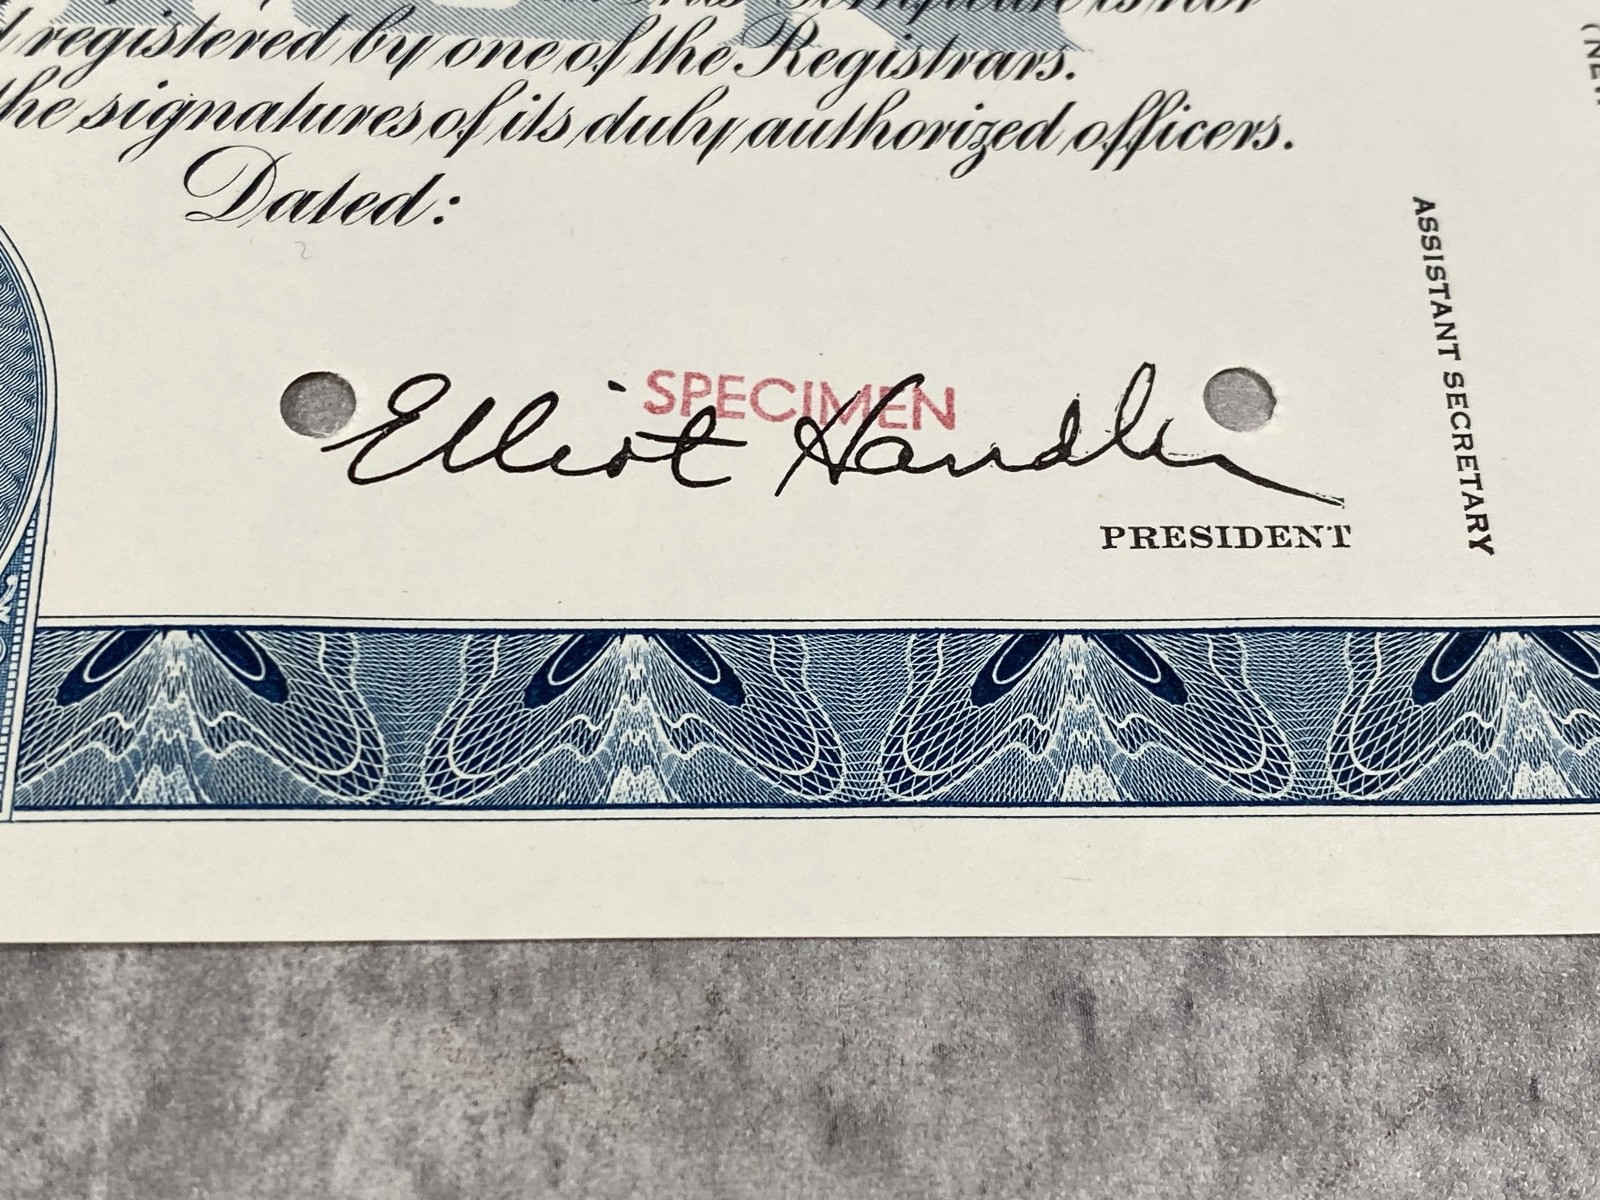 This Certificate is not
registered by one of the Registrars.
the signatures of its duly authorized officers.
Dated:
SPECIMEN
Elliot Handler
PRESIDENT
ASSISTANT SECRETARY